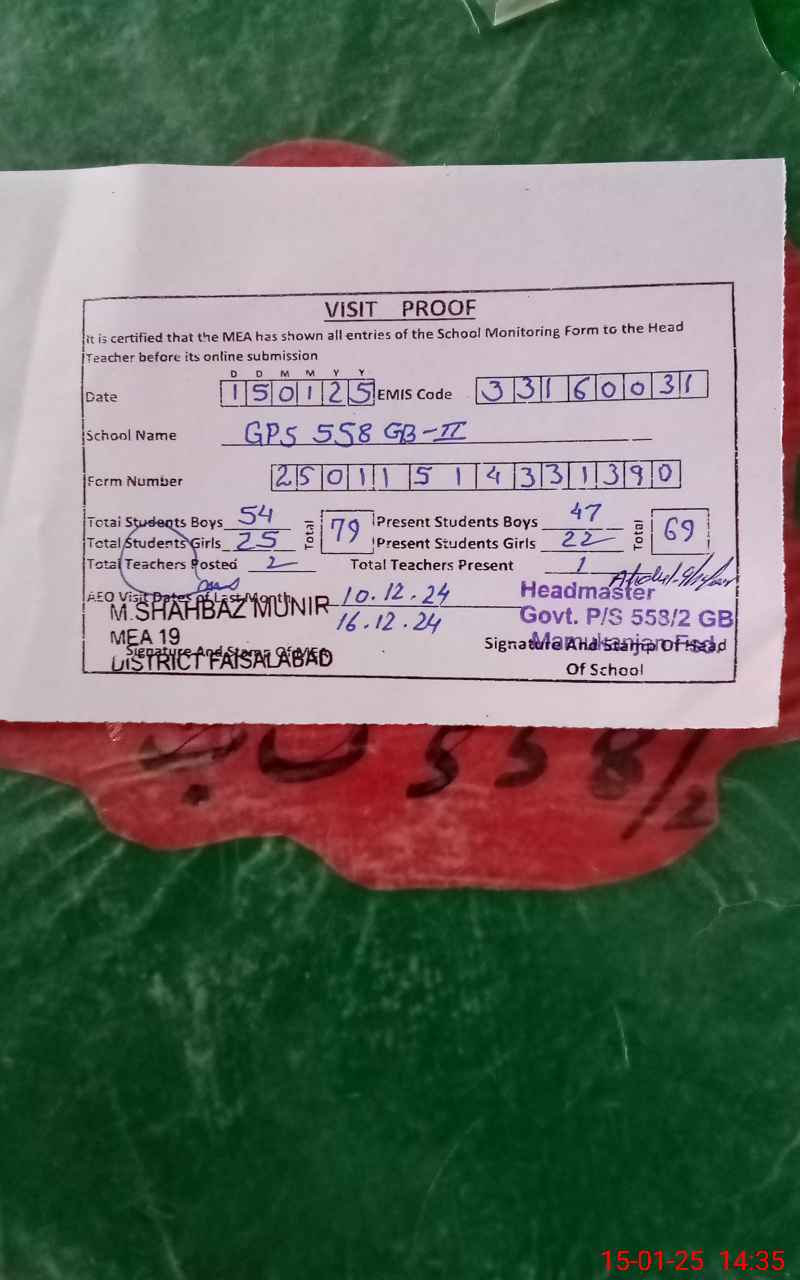 VISIT PROOF
It is certified that the MEA has shown all entries of the School Monitoring Form to the Head
Teacher before its online submission
D D M M Y Y
Date 150125 EMIS Code 33160031
School Name GPS 558 GB-II
Form Number 25011514331390
Total Students Boys 54 Total 79 Present Students Boys 47 Total 69
Total Students Girls 25 Present Students Girls 22
Total Teachers Posted 2 Total Teachers Present 1
AEO Visit Dates of Last Month 10.12.24
16.12.24
M.SHAHBAZ MUNIR
MEA 19
DISTRICT FAISALABAD
Signature And Stamp Of MEA
Headmaster
Govt. P/S 558/2 GB
Mamukanjan Fsd.
Signature And Stamp Of Head
Of School
558/2
15-01-25 14:35